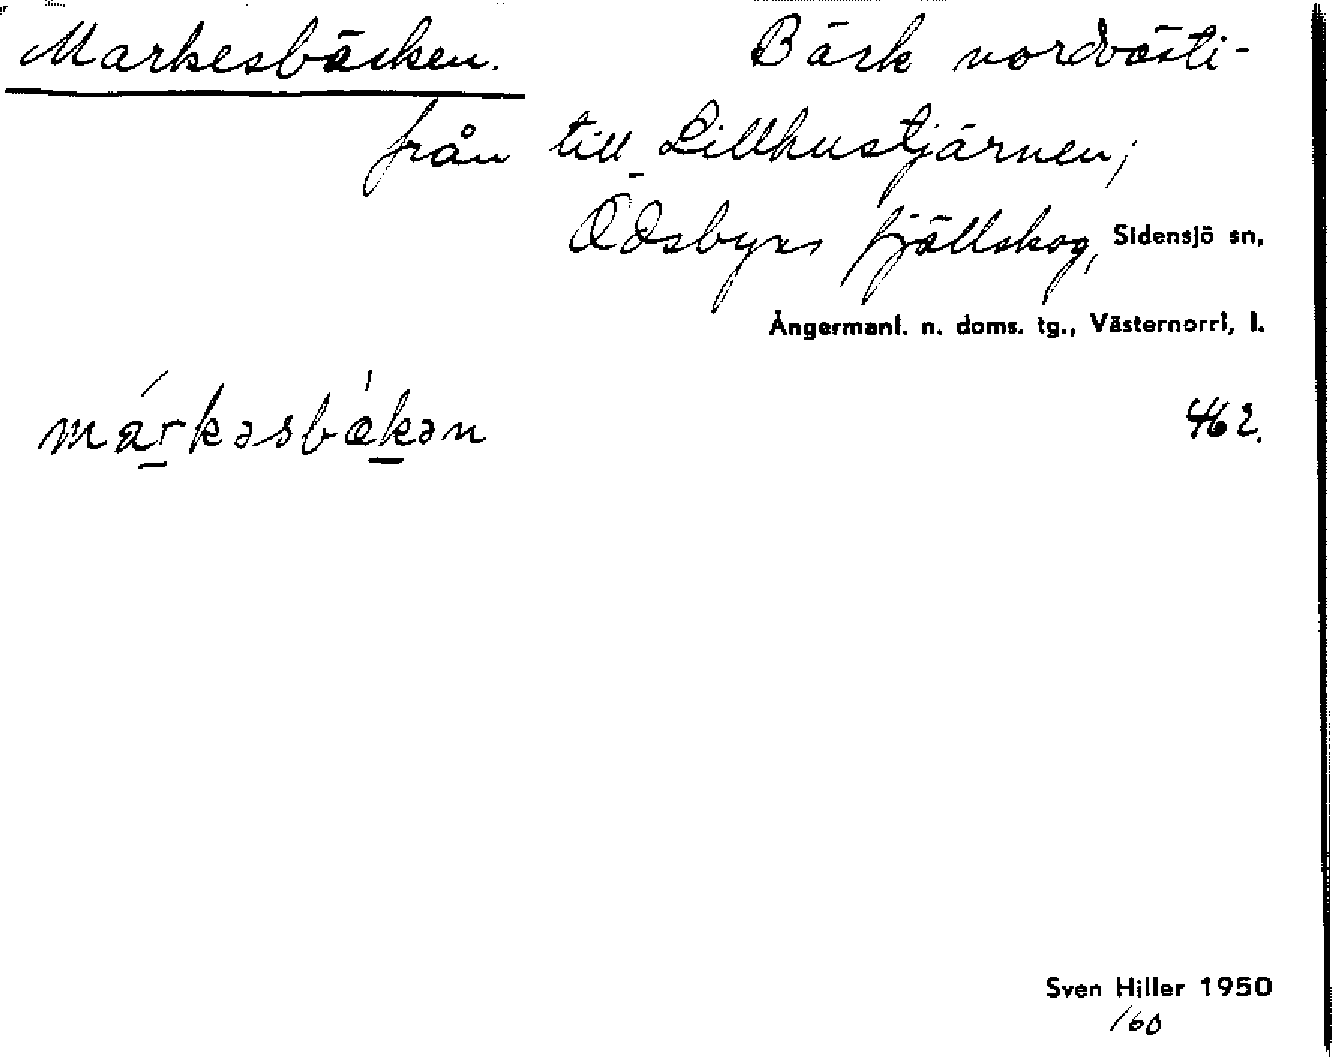 Markesbäcken. Bäck nordvästi-
från till Lillhustjärnen;
Ödsbyns fjällskog, Sidensjö sn,
Ångermanl. n. doms. tg., Västernorrl, l.
márkəsbǽkən 462.
Sven Hiller 1950
/60